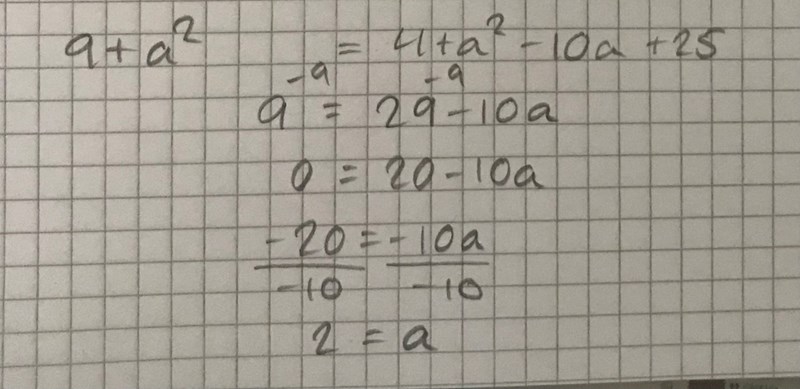 9+a² = 4+a²-10a+25
-9 -9
9 = 29-10a
0 = 20-10a
-20 = -10a
-10 -10
2 = a